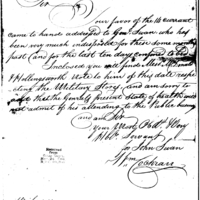 Sir
Your favor of the 14 currant
came to hande addressed to Genl. Swan who has
been very much indisposed for these some months
past (and for the last ten days confined to bed
Inclosed you will find Messrs
& Hollingsworth Note to him of this date respec
ting the Military Story, and am sorry to
say that the Generals present State of health does
not admit of his attending to the Public
and am Sir
your Most Obdt. Very
Hble. Servant
for John Swan
Wm